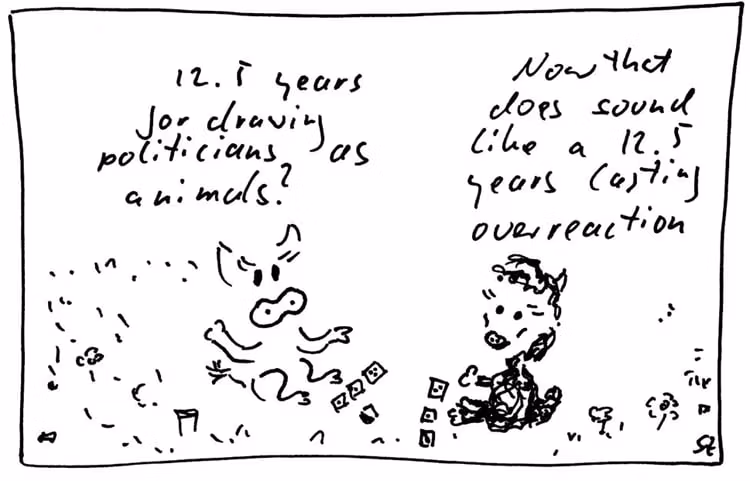 12.5 years
for drawing
politicians as
animals?
Now that
does sound
like a 12.5
years lasting
overreaction